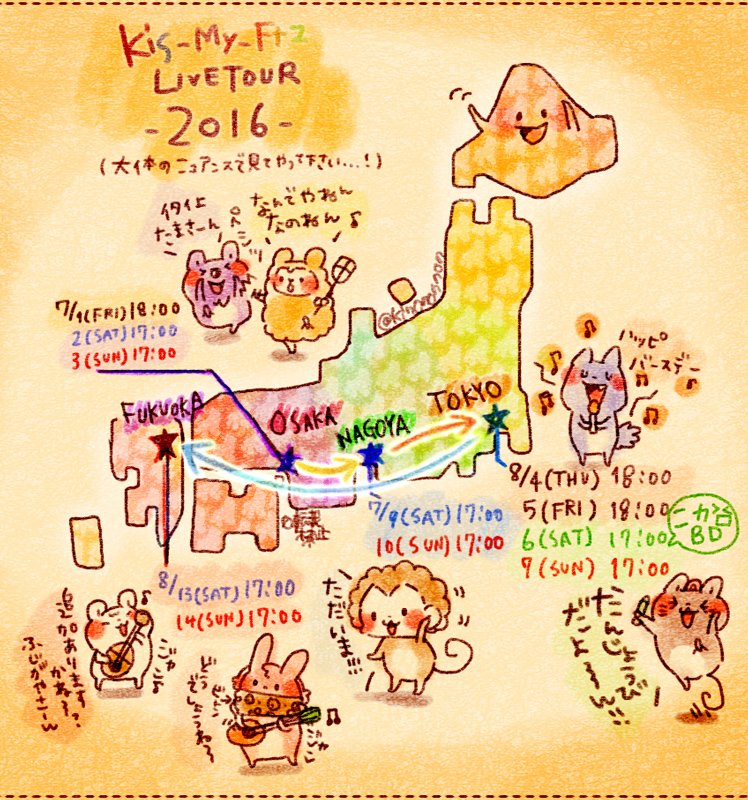 Kis-My-Ft2
LIVE TOUR
-2016-
(大体のニュアンスで見てやって下さい…!)
イタイよ
たまさーん
ペシッ
なんでやねん
なのねん♪
7/1(FRI)18:00
2(SAT)17:00
3(SUN)17:00
ハッピ
バースデー
FUKUOKA
OSAKA
NAGOYA
TOKYO
8/4(THU) 18:00
5(FRI) 18:00
6(SAT) 17:00
7(SUN) 17:00
ニカ台
BD
7/9(SAT)17:00
10(SUN)17:00
8/13(SAT)17:00
14(SUN)17:00
追加あります?
かねー
ふじがやさーん
どう
でしょうねー
ただいま!!!
たんじょうび
だよーん!!